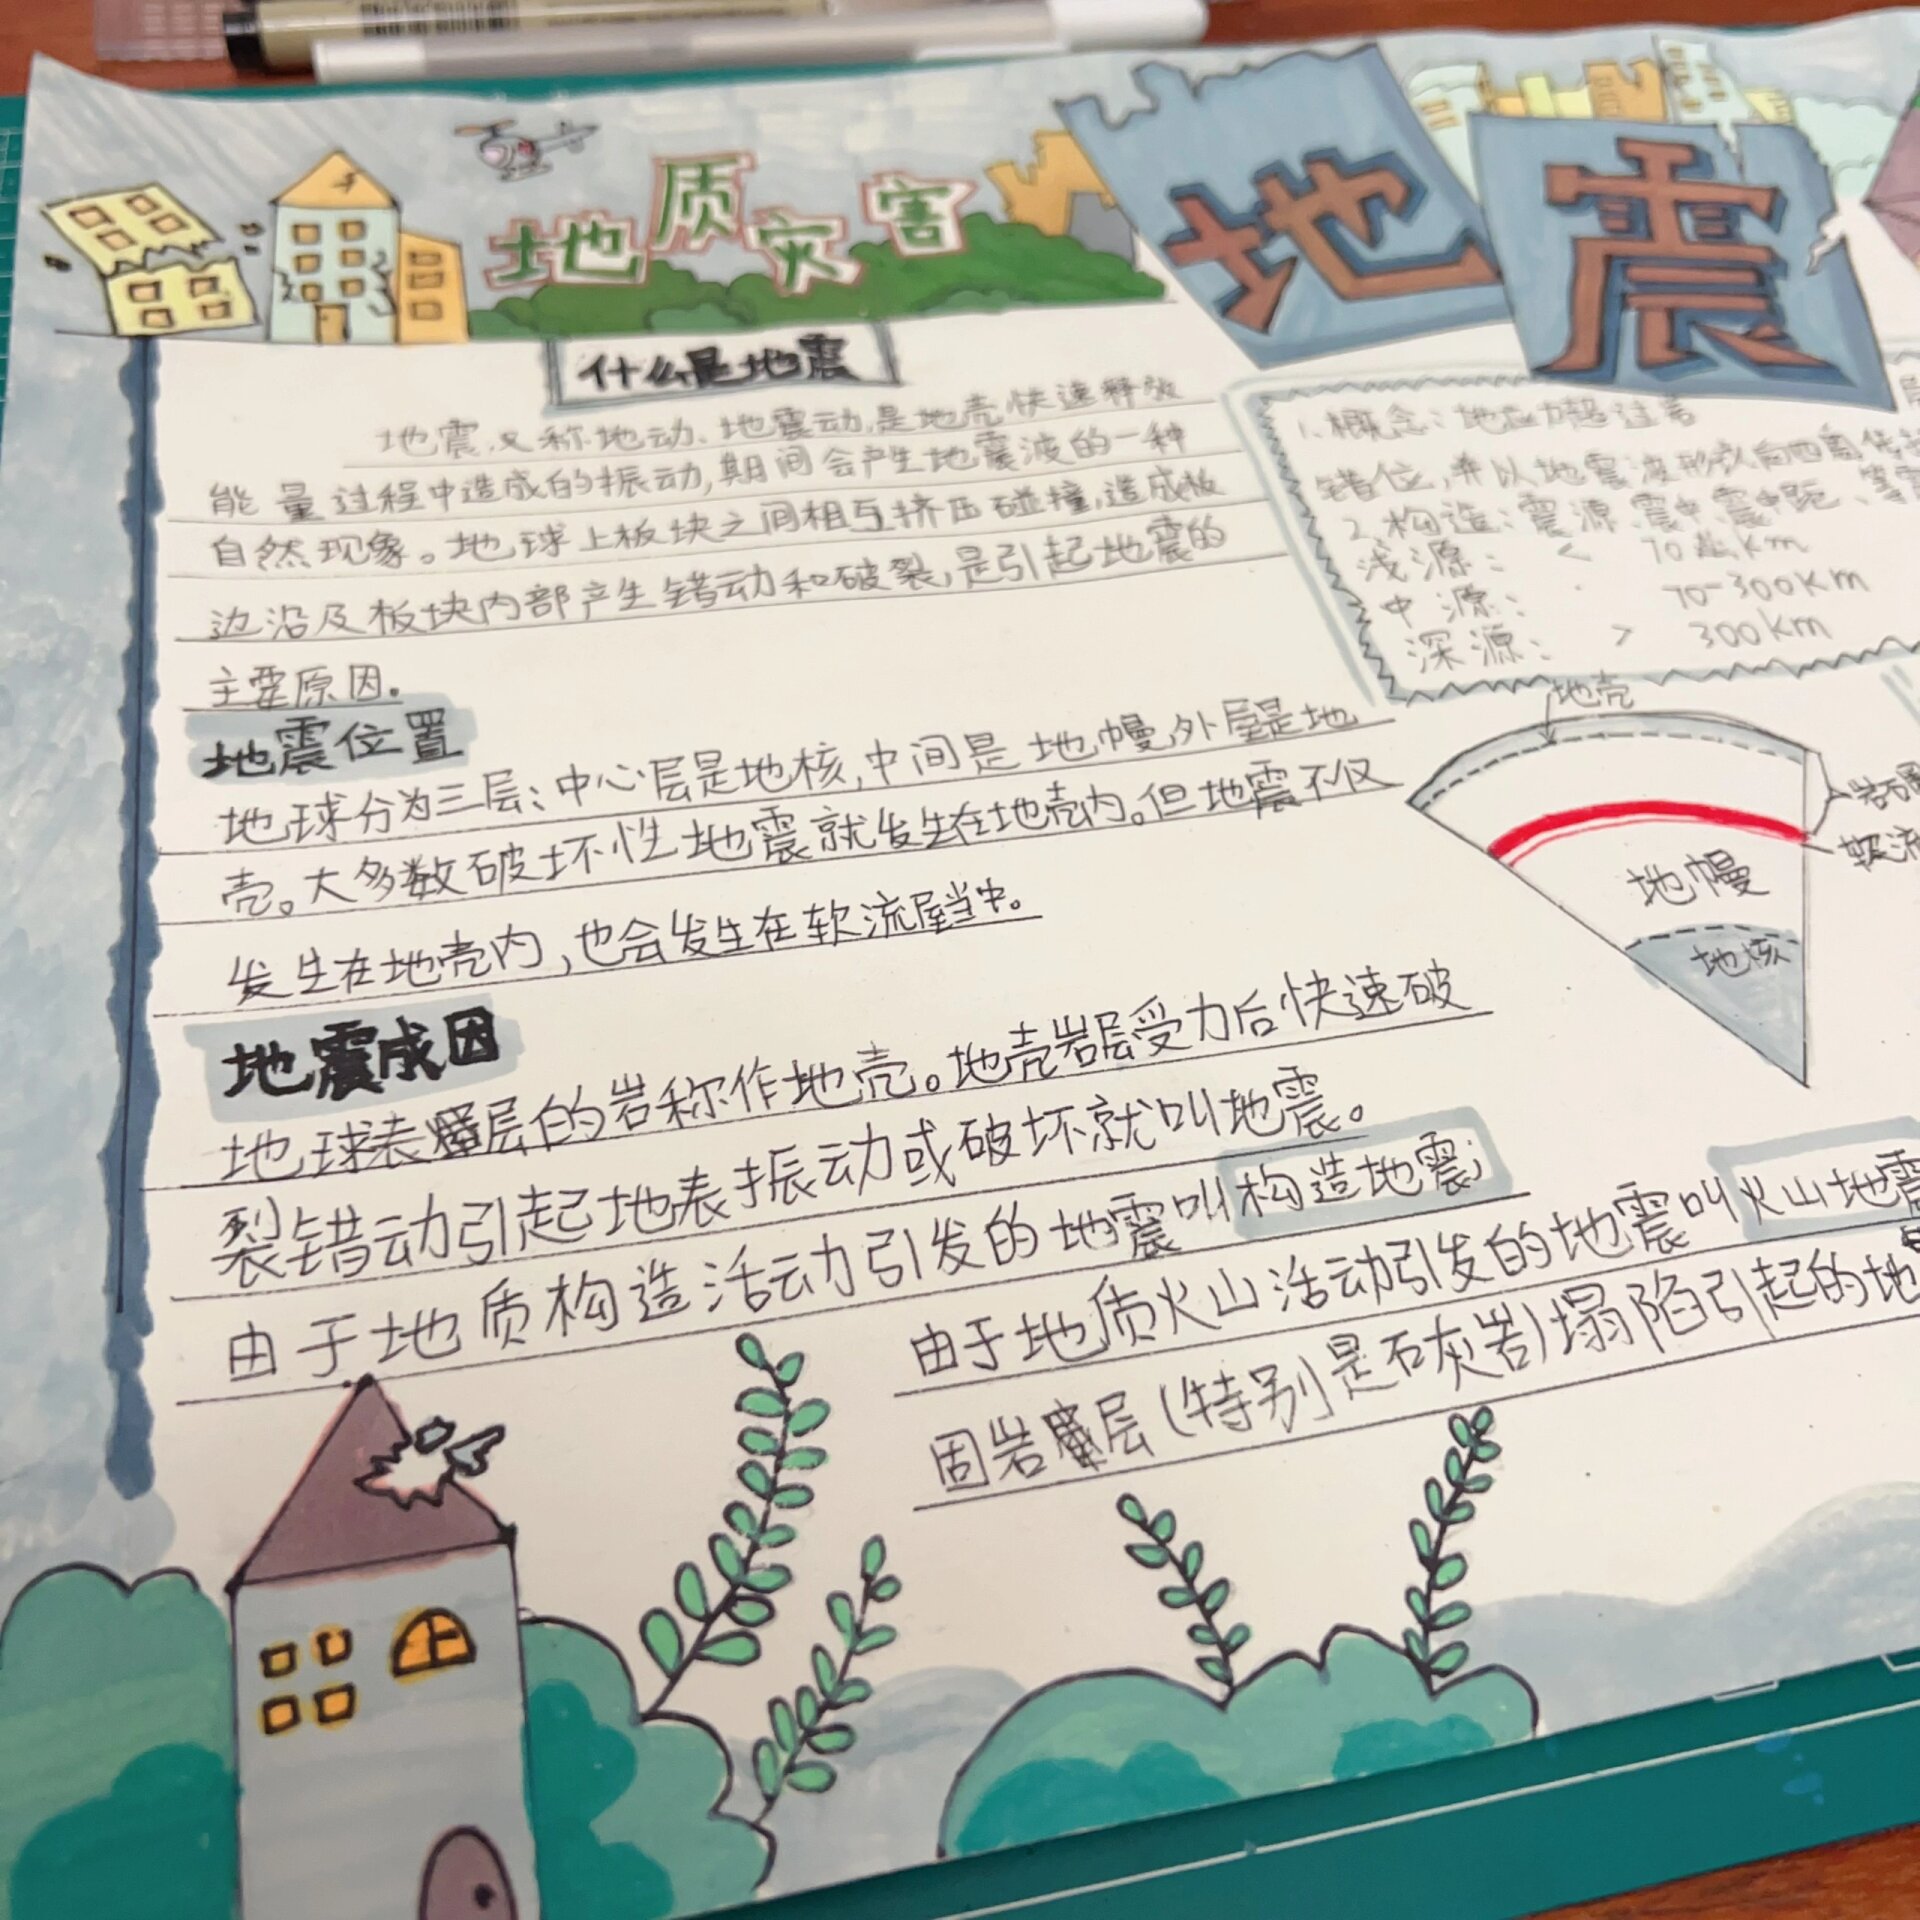 地质灾害
地震
什么是地震
地震,又称地动、地震动,是地壳快速释放
能量过程中造成的振动,期间会产生地震波的一种
自然现象。地球上板块之间相互挤压碰撞,造成板
边沿及板块内部产生错动和破裂,是引起地震的
主要原因。
地震位置
地球分为三层:中心层是地核,中间是地幔,外层是地
壳。大多数破坏性地震就发生在地壳内。但地震不仅
发生在地壳内,也会发生在软流层当中。
地震成因
地球表层的岩称作地壳。地壳岩层受力后快速破
裂错动引起地表振动或破坏就叫地震。
由于地质构造活动引发的地震叫构造地震;
由于地质火山活动引发的地震叫火山地震
固岩层(特别是石灰岩)塌陷引起的地
1、概念:地应力超过岩
错位,并以地震波形式向四周传
2、构造:震源 震中 震中距、等震
浅源: < 70 km
中源: 70-300km
深源: > 300km
地壳
岩石圈
软流
地幔
地核